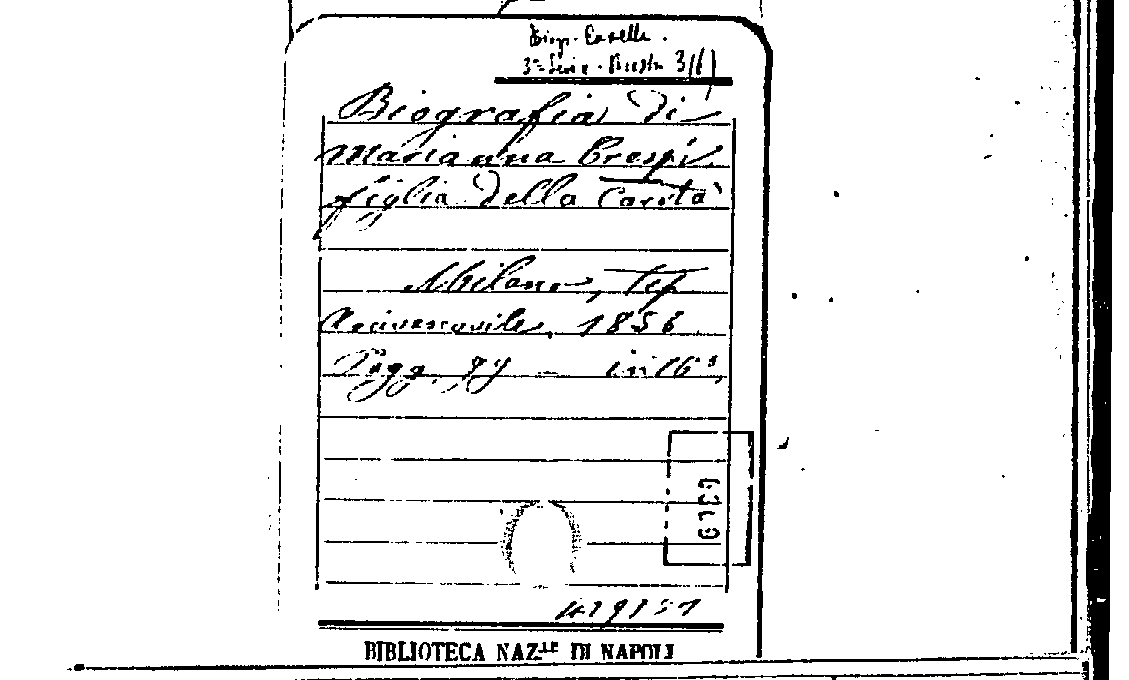 Biogr. Cartella.
3ª Serie. Busta 3/(1)
Biografia di
Marianna Crespi
figlia della Carità
Milano, tip
Arcivescovile, 1856
Pagg. in 16°,
BIBLIOTECA NAZ.LE DI NAPOLI